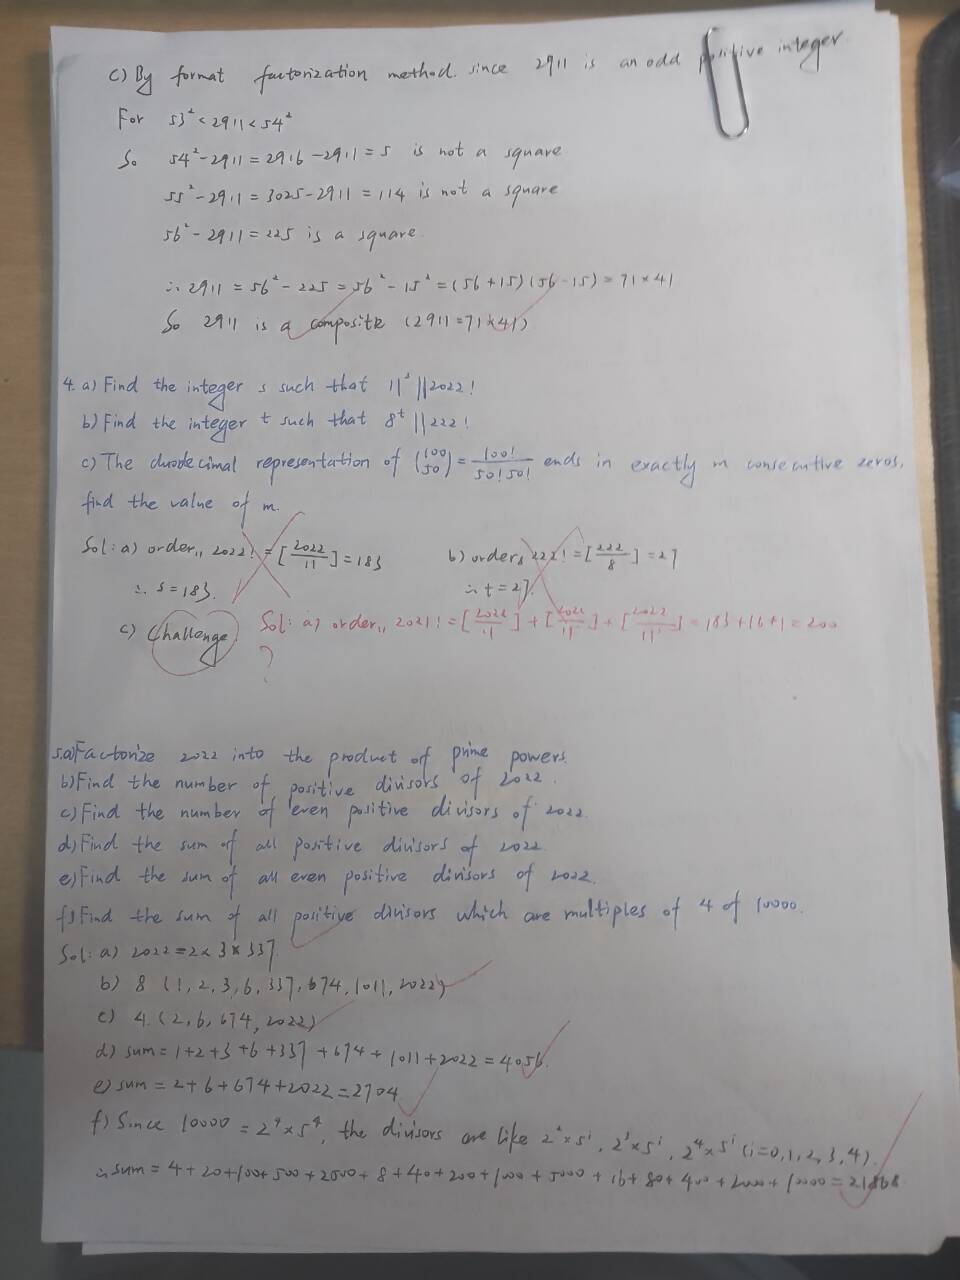 c) By format factorization method. since 2911 is an odd positive integer.
For 53² < 2911 < 54²
So 54² - 2911 = 2916 - 2911 = 5 is not a square
55² - 2911 = 3025 - 2911 = 114 is not a square
56² - 2911 = 225 is a square.
∴ 2911 = 56² - 225 = 56² - 15² = (56+15)(56-15) = 71×41
So 2911 is a composite (2911 = 71×41)
4. a) Find the integer s such that 11ˢ || 2022!
b) Find the integer t such that 8ᵗ || 222!
c) The duodecimal representation of (100 50) = 100! / 50! 50! ends in exactly m consecutive zeros.
find the value of m.
Sol: a) order₁₁ 2022! = [2022/11] = 183 b) order₈ 222! = [222/8] = 27
∴ s = 183. ∴ t = 27.
c) Challenge. Sol: a) order₁₁ 2021! = [2022/11] + [2022/11²] + [2022/11³] = 183+16+1 = 200
?
5. a) Factorize 2022 into the product of prime powers.
b) Find the number of positive divisors of 2022.
c) Find the number of even positive divisors of 2022.
d) Find the sum of all positive divisors of 2022
e) Find the sum of all even positive divisors of 2022.
f) Find the sum of all positive divisors which are multiples of 4 of 10000.
Sol: a) 2022 = 2×3×337.
b) 8 (1, 2, 3, 6, 337, 674, 1011, 2022)
c) 4. (2, 6, 674, 2022)
d) sum = 1+2+3+6+337+674+1011+2022 = 4056.
e) sum = 2+6+674+2022 = 2704
f) Since 10000 = 2⁴×5⁴, the divisors are like 2²×5ⁱ, 2³×5ⁱ, 2⁴×5ⁱ (i=0,1,2,3,4).
∴ sum = 4+20+100+500+2500+8+40+200+1000+5000+16+80+400+2000+10000 = 21868